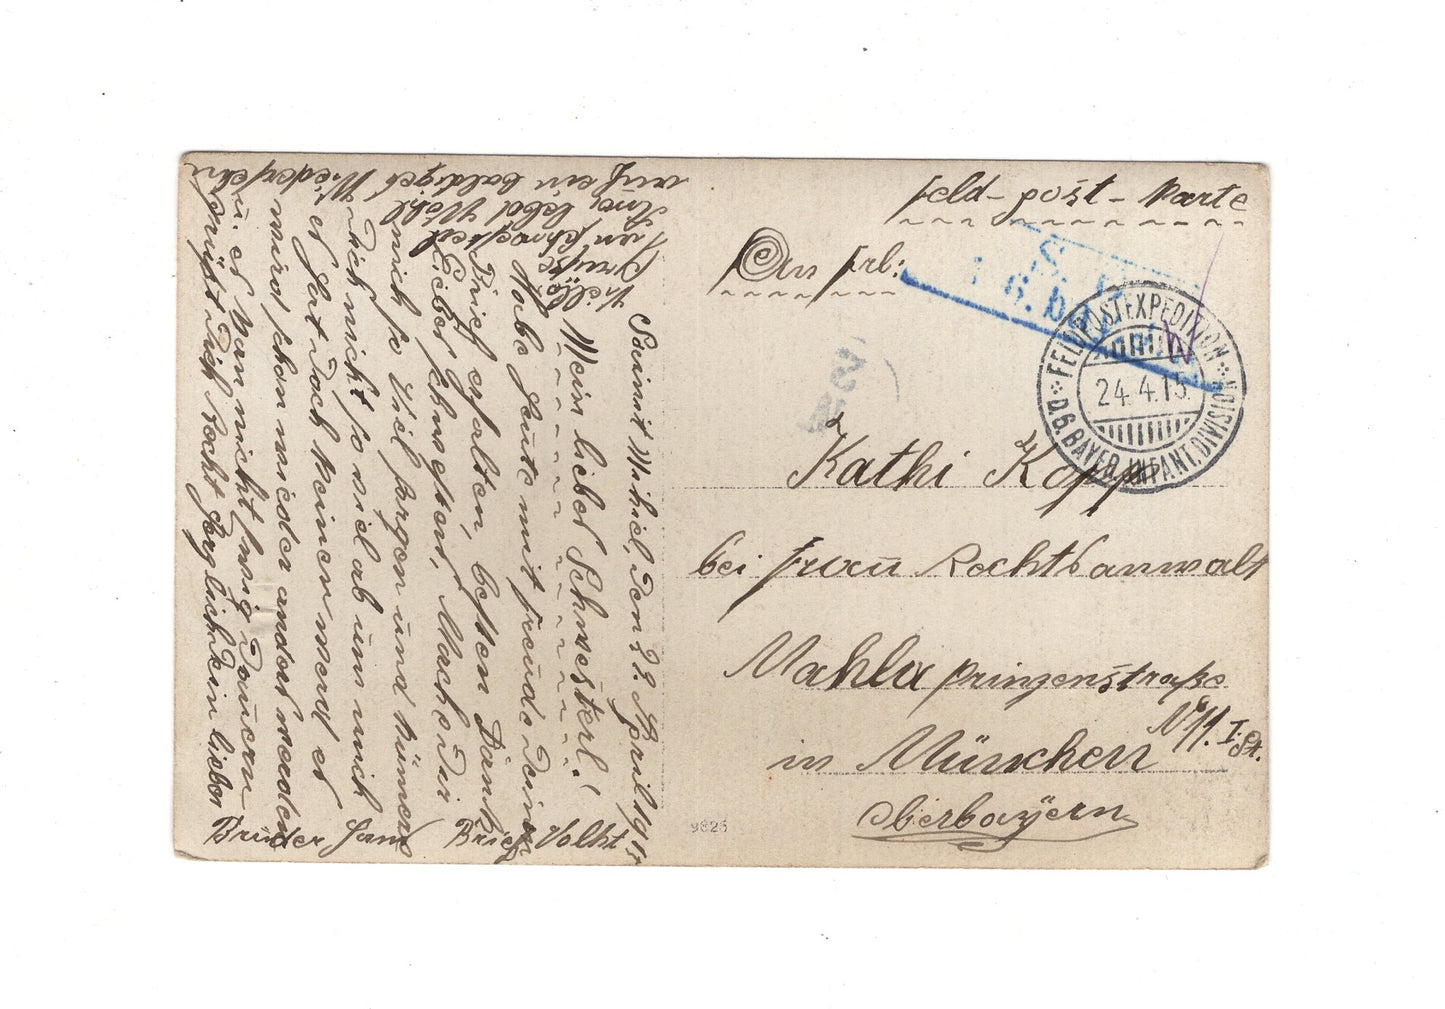 Feld-post-Karte
An Frl:
S. B.
FELDPOSTEXPEDITION
24.4.15.
D.6.BAYER.INFANT.DIVISION
Kathi Kopp
bei Frau Rechtsanwalt
Mahla Prinzenstraße
No 11. I. St.
in München
Oberbayern
9825
Saint Mihiel, den 22. April 1915
Mein liebes Schwesterl!
Habe heute mit Freude Deinen
Brief erhalten, besten Dank
Liebe Schwester, Mache Dir
nicht so viel Sorgen und kümere
Dich nicht so viel ab um mich
es hat doch keinen werd es
wird schon wieder anders werden
u. es kann nicht ewig dauern
grüßt Dich Recht herzlich Dein lieber
Bruder Hans
Brief folgt
Viele
Grüße
Leb wohl
auf ein baldiges Wiedersehn